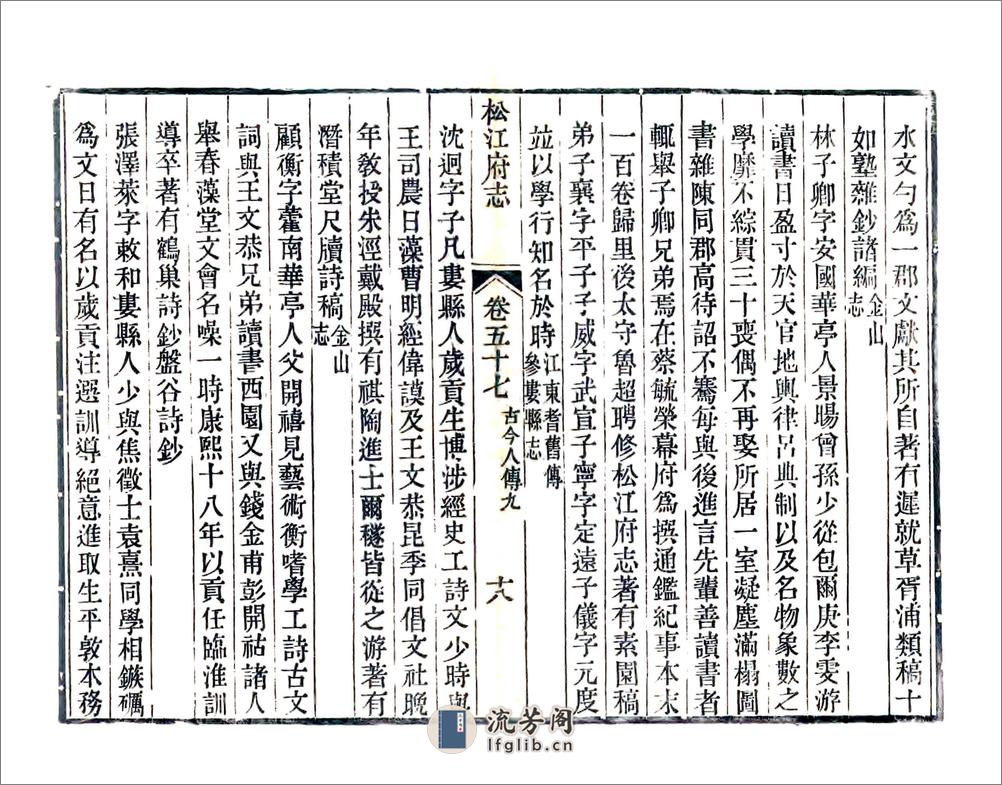 水文勺爲一郡文獻其所自著有遲就草胥浦類稿十
如塾雜鈔諸編金山志
林子卿字安國華亭人景暘曾孫少從包爾庚李雯游
讀書日盈寸於天官地輿律呂典制以及名物象數之
學靡不綜貫三十喪偶不再娶所居一室凝塵滿榻圖
書雜陳同郡高待詔不騫每與後進言先輩善讀書者
輒舉子卿兄弟焉在蔡毓榮幕府爲撰通鑑紀事本末
一百卷歸里後太守魯超聘修松江府志著有素園稿
弟子襄字平子子威字武宣子寧字定遠子儀字元度
並以學行知名於時江東耆舊傳參婁縣志
松江府志 卷五十七 古今人傳九 十八
沈迥字子凡婁縣人歲貢生博涉經史工詩文少時與
王司農日藻曹明經偉謨及王文恭昆季同倡文社晚
年敎授朱涇戴殿撰有祺陶進士爾穟皆從之游著有
潛積堂尺牘詩稿金山志
顧衡字藿南華亭人父開禧見藝術衡嗜學工詩古文
詞與王文恭兄弟讀書西園又與錢金甫彭開祜諸人
舉春藻堂文會名噪一時康熙十八年以貢任臨淮訓
導卒著有鶴巢詩鈔盤谷詩鈔
張澤萊字敕和婁縣人少與焦徵士袁熹同學相鏃礪
爲文日有名以歲貢注選訓導絕意進取生平敦本務
流芳阁
lfglib.cn